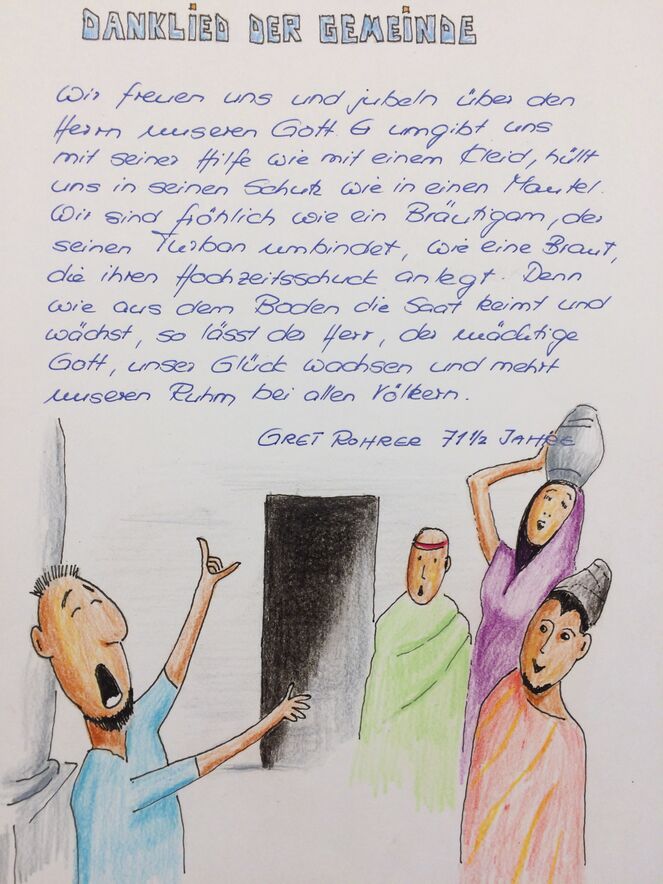 DANKLIED DER GEMEINDE
Wir freuen uns und jubeln über den
Herrn unseren Gott. Er umgibt uns
mit seiner Hilfe wie mit einem Kleid, hüllt
uns in seinen Schutz wie in einen Mantel.
Wir sind fröhlich wie ein Bräutigam, der
seinen Turban umbindet, wie eine Braut,
die ihren Hochzeitsschuck anlegt. Denn
wie aus dem Boden die Saat keimt und
wächst, so lässt der Herr, der mächtige
Gott, unser Glück wachsen und mehrt
unseren Ruhm bei allen Völkern.
GRET ROHRER 71 1/2 JAHRE